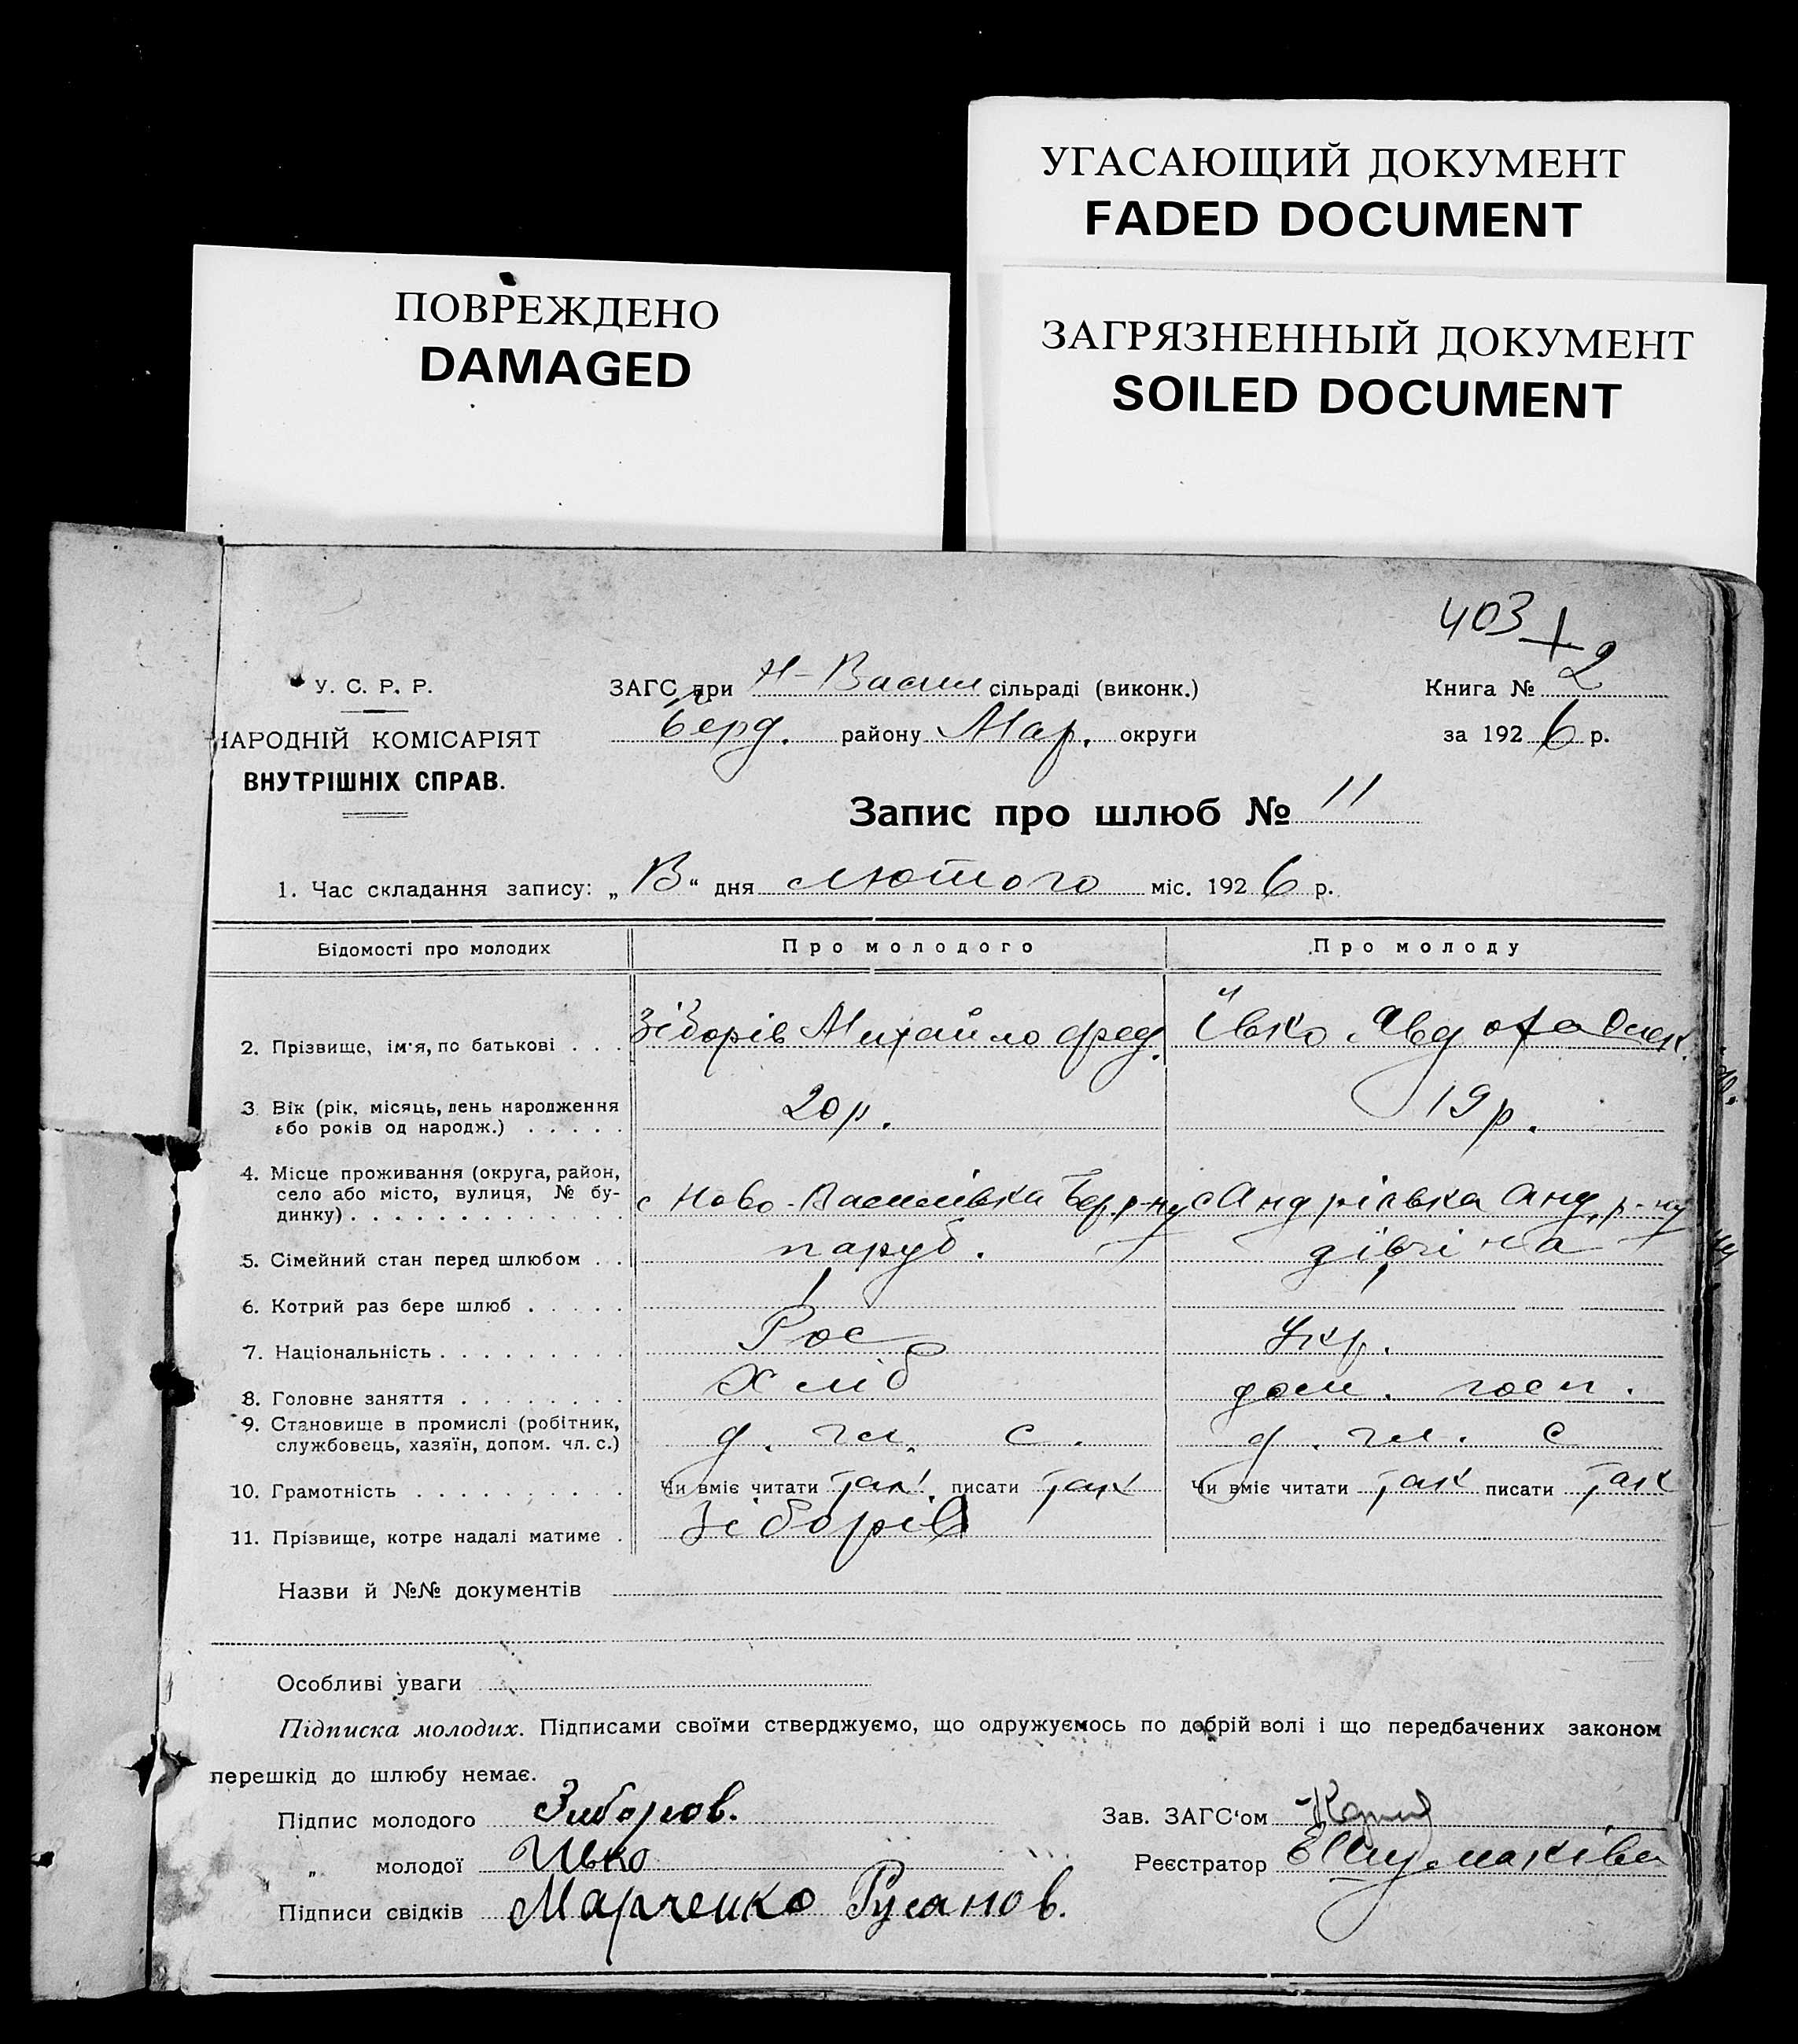 УГАСАЮЩИЙ ДОКУМЕНТ
FADED DOCUMENT
ПОВРЕЖДЕНО
DAMAGED
ЗАГРЯЗНЕННЫЙ ДОКУМЕНТ
SOILED DOCUMENT
403
У. С. Р. Р.
НАРОДНІЙ КОМІСАРІЯТ
ВНУТРІШНІХ СПРАВ.
ЗАГС при Н-Васил сільраді (виконк.)
Берд. району Мар. округи
Книга № 2
за 1926 р.
Запис про шлюб № 11
1. Час складання запису: „ “ дня лютого міс. 1926 р.
Відомості про молодих Про молодого Про молоду
2. Прізвище, ім'я, по батькові . . . Зіборів Михайло Фед. Івко Явдоха Олек.
3. Вік (рік, місяць, день народження
або років од народж.) . . . . . 20 р. 19 р.
4. Місце проживання (округа, район,
село або місто, вулиця, № бу-
динку) . . . . . . . . . . . . . с Ново-Василівка Бер. р-ну с Андріївка Анд. р-ну
5. Сімейний стан перед шлюбом . . паруб. дівчіна
6. Котрий раз бере шлюб . . . . . 1 1
7. Національність . . . . . . . . . Рос Укр.
8. Головне заняття . . . . . . . . Хліб дом. госп.
9. Становище в промислі (робітник,
службовець, хазяїн, допом. чл. с.) д. чл. с. д. чл. с
10. Грамотність . . . . . . . . . . Чи вміє читати так. писати так Чи вміє читати так писати так
11. Прізвище, котре надалі матиме . Зіборів
Назви й №№ документів
Особливі уваги
Підписка молодих. Підписами своїми стверджуємо, що одружуємось по добрій волі і що передбачених законом
перешкід до шлюбу немає.
Підпис молодого Зиборов. Зав. ЗАГС'ом
„ молодої Ивко Реєстратор
Підписи свідків Марченко Русанов.